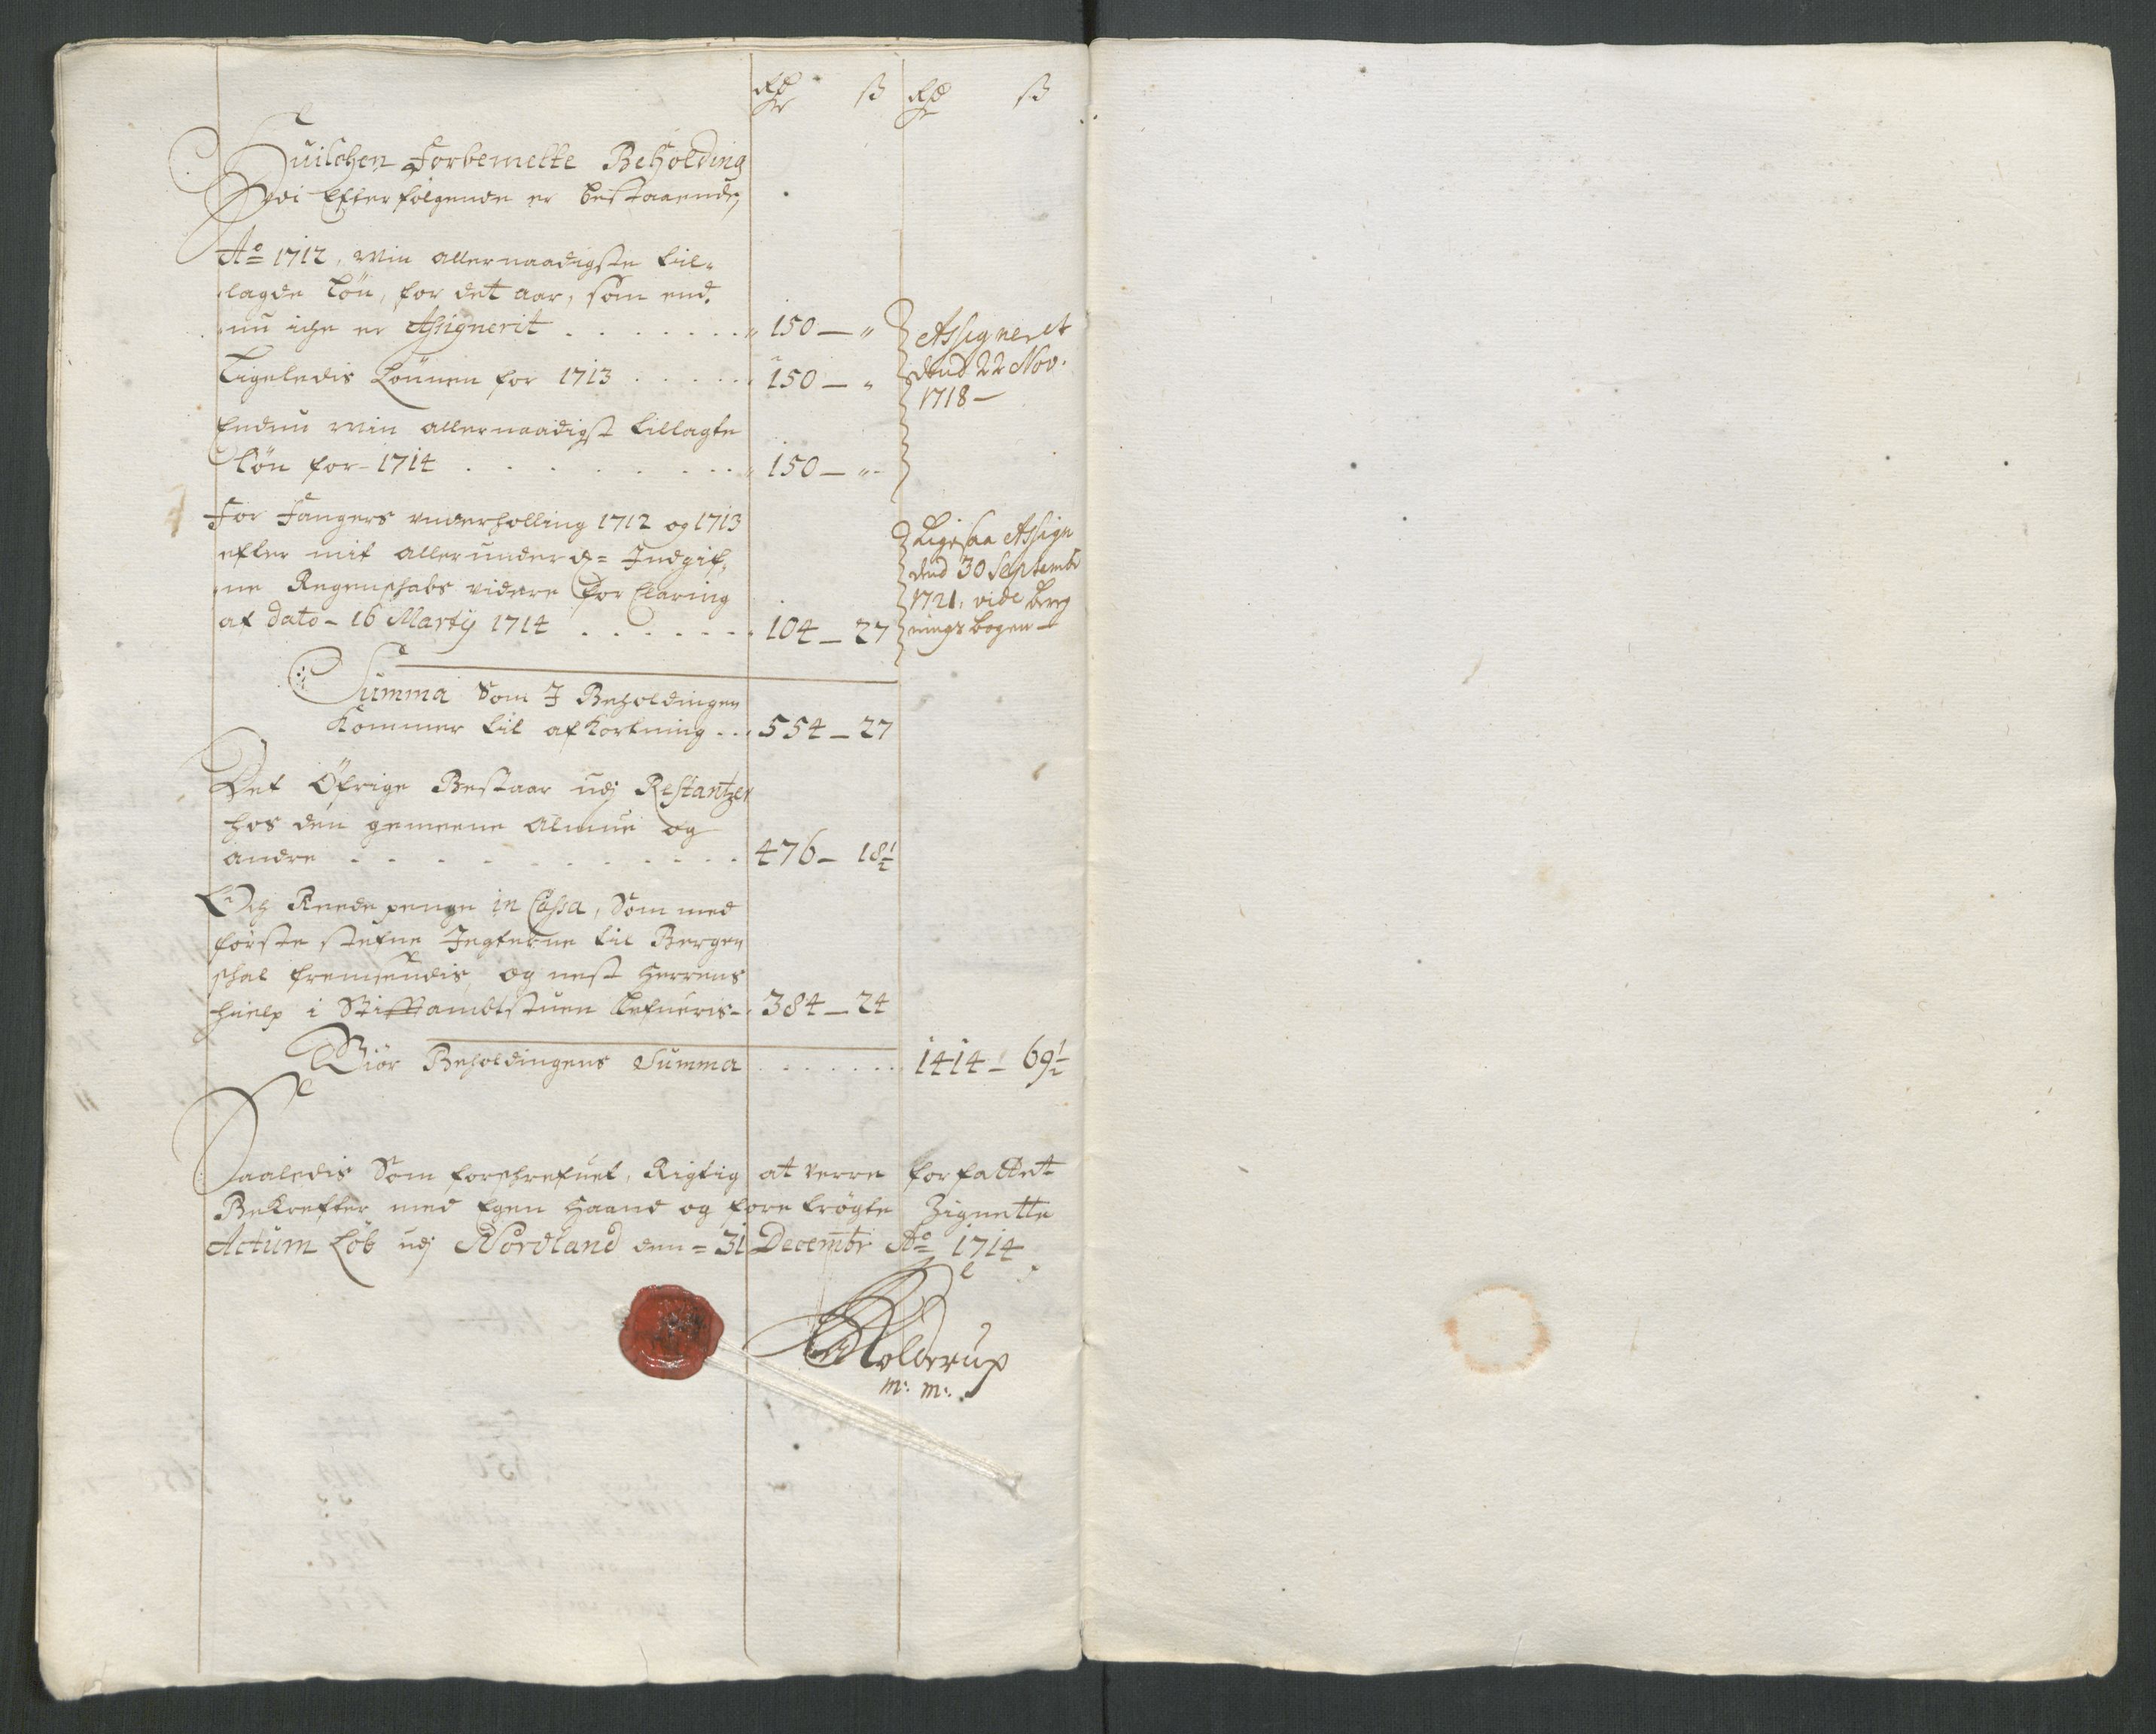 Rdr ß Rdr ß
Huilchen Forbemelte Beholding
Udi Efterfølgende er bestaaende,
Ao 1712, Min allernaadigste til-
lagde Løn, for det aar, som end-
nu iche er Assignerit . . . . . . . . " 150 — "
Assigneret
dend 22 Nov.
1718 —
Ligeledis Lønnen for 1713 . . . . . . " 150 — "
Endnu Min allernaadigst tillagte
Løn for - 1714 . . . . . . . . . " 150 — "
For Fangers underholling 1712 og 1713
efter mit allerunderd = Indgif-
ne Regenschabs videre Forclaring
af dato - 16 Martij 1714 . . . . . . . 104 — 27
Ligesaa Assign
dend 30 Septembr
1721, vide
nings bogen —
Summa Som I Beholdingen
Kommer til afKortning . . . 554 — 27
Det Øfrige Bestaar udj Restantzer
hos den gemeene Almue og
andre . . . . . . . . . . . 476 — 18½
Och Reede penge in Cassa, Som med
første stefne Jegterne til Bergen
schal fremsendis, og nest Herrens
hielp i Stifftambtstuen lefueris . . 384 — 24
Giør Beholdingens Summa . . . . . . . 1414 — 69½
Saaledis Som foreschrefuet, Rigtig at verre forfattet
BeKrefter med Egen Haand og foretrøgte Zignette
Actum Løb udj Nordland den = 31 Decembr Ao 1714
Kolderup
m: m: